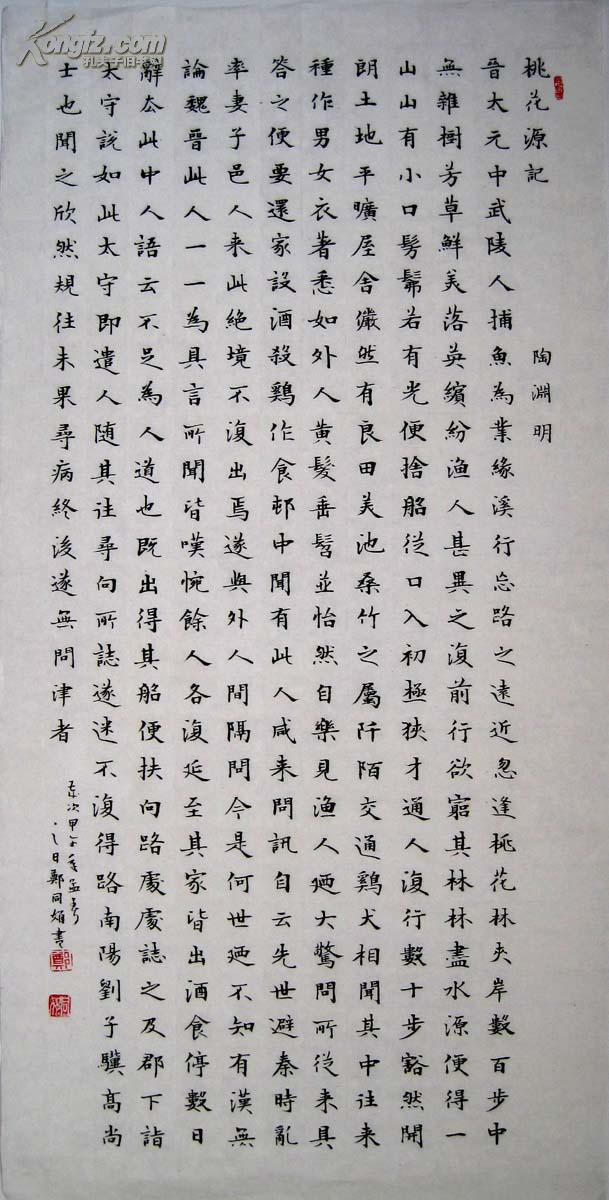 桃花源記 陶淵明
晉太元中武陵人捕魚為業緣溪行忘路之遠近忽逢桃花林夾岸數百步中
無雜樹芳草鮮美落英繽紛漁人甚異之復前行欲窮其林林盡水源便得一
山山有小口髣髴若有光便捨船從口入初極狹才通人復行數十步豁然開
朗土地平曠屋舍儼然有良田美池桑竹之屬阡陌交通鷄犬相聞其中往来
種作男女衣著悉如外人黃髮垂髫並怡然自樂見漁人廼大驚問所從来具
答之便要還家設酒殺鷄作食邨中聞有此人咸来問訊自云先世避秦時亂
率妻子邑人来此絕境不復出焉遂與外人間隔問今是何世廼不知有漢無
論魏晉此人一一為具言所聞皆嘆惋餘人各復延至其家皆出酒食停數日
辭去此中人語云不足為人道也既出得其船便扶向路處處誌之及郡下詣
太守說如此太守即遣人随其往尋向所誌遂迷不復得路南陽劉子驥高尚
士也聞之欣然規往未果尋病終後遂無問津者
歲次甲午年孟春
日鄭同書
Kongfz.com
孔夫子旧书网